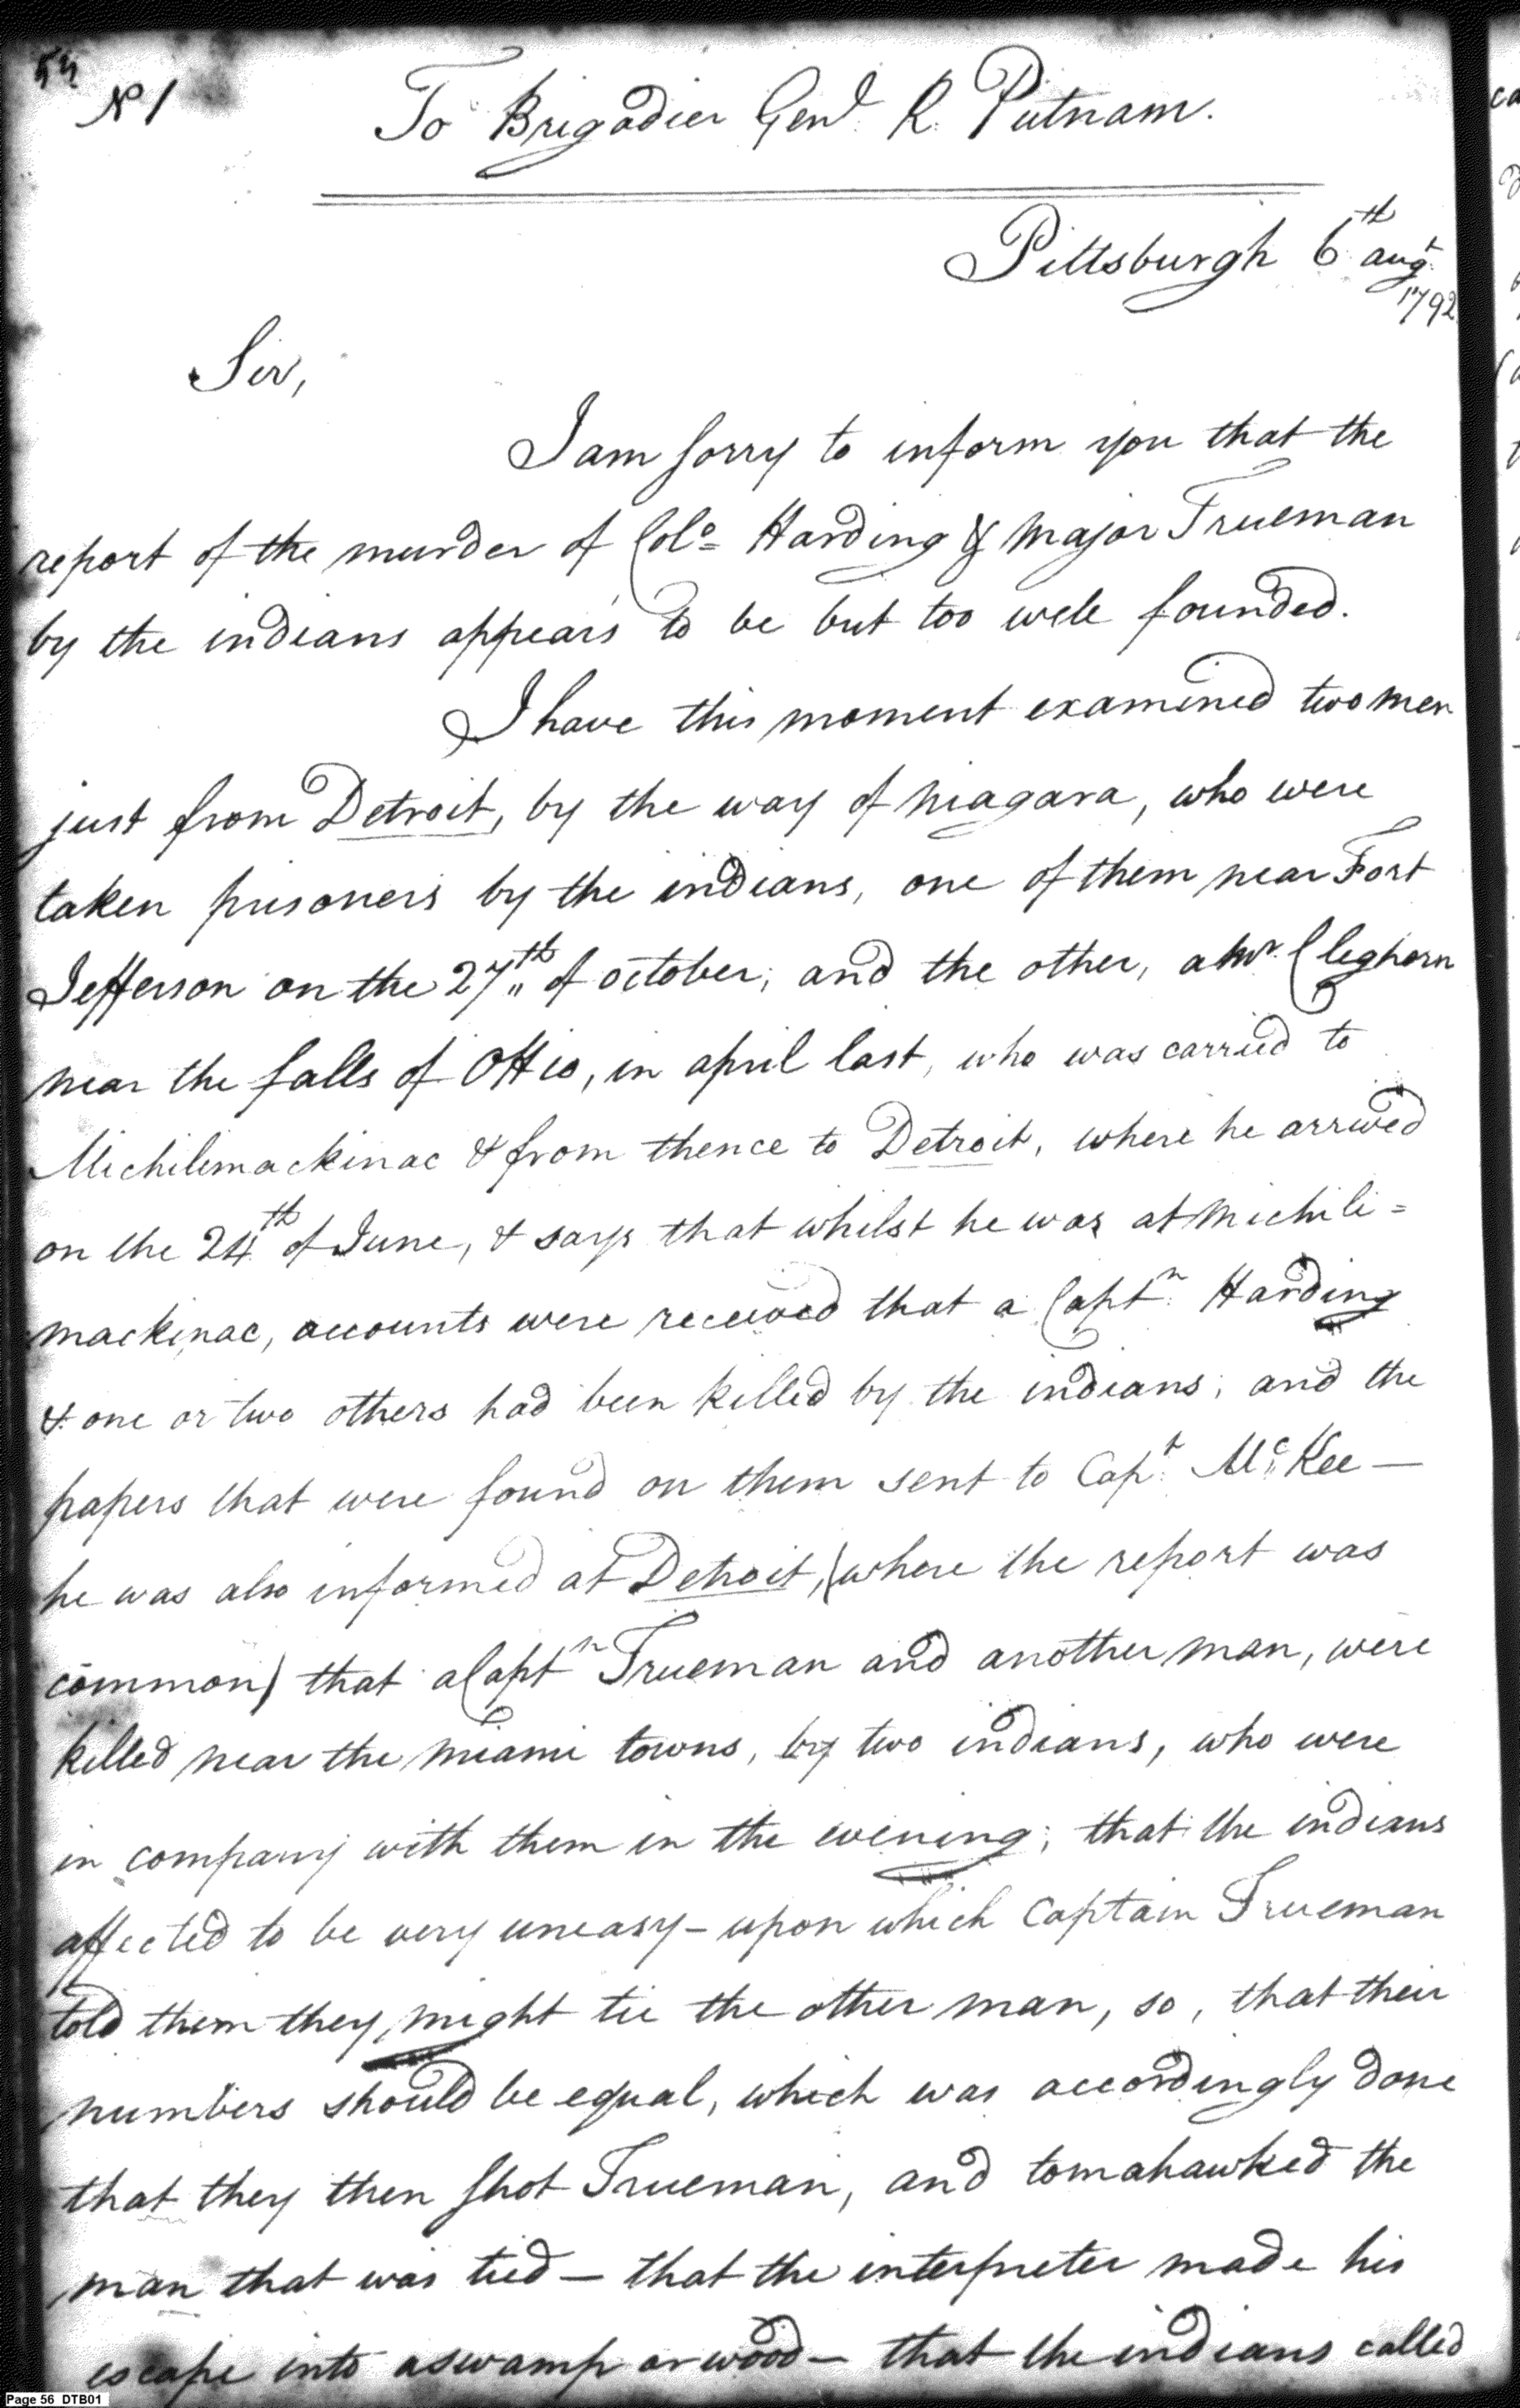 54
No 1
To Brigadier Genl. R. Putnam.
Pittsburgh 6th augt.
1792
Sir,
I am sorry to inform you that the
report of the murder of Colo= Harding & Major Trueman
by the indians appears to be but too well founded.
I have this moment examined two men
just from Detroit, by the way of niagara, who were
taken prisoners by the indians, one of them near Fort
Jefferson on the 27th of october; and the other, a Mr. Cleghorn
near the falls of OHio, in april last, who was carried to
Michilimackinac & from thence to Detroit, where he arrived
on the 24th of June, & says that whilst he was at Michili=
mackinac, accounts were received that a Captn. Harding
& one or two others had been killed by the indians; and the
papers that were found on them sent to Capt. McKee—
he was also informed at Detroit, (where the report was
common) that a Captn Trueman and another man, were
killed near the miami towns, by two indians, who were
in company with them in the evening; that the indians
affected to be very uneasy— upon which Captain Trueman
told them they might tie the other man, so, that their
numbers should be equal, which was accordingly done
that they then shot Trueman, and tomahawked the
man that was tied— that the interpreter made his
escape into a swamp or wood— that the indians called
Page 56 DTB01